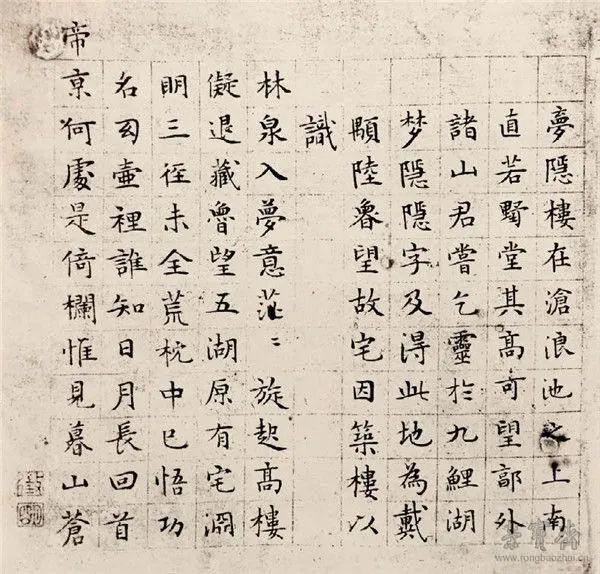 夢隱樓在滄浪池之上南
直若墅堂其高可望郭外
諸山君嘗乞靈於九鯉湖
梦隱隱字及淂此地為戴
顒陸魯望故宅因築樓以
識
林泉入夢意茫〻旋起高樓
儗退藏魯望五湖原有宅淵
明三徑未全荒枕中已悟功
名幻壷裡誰知日月長回首
帝京何處是倚欄惟見暮山蒼
榮寶齋
www.rongbaozhai.cn